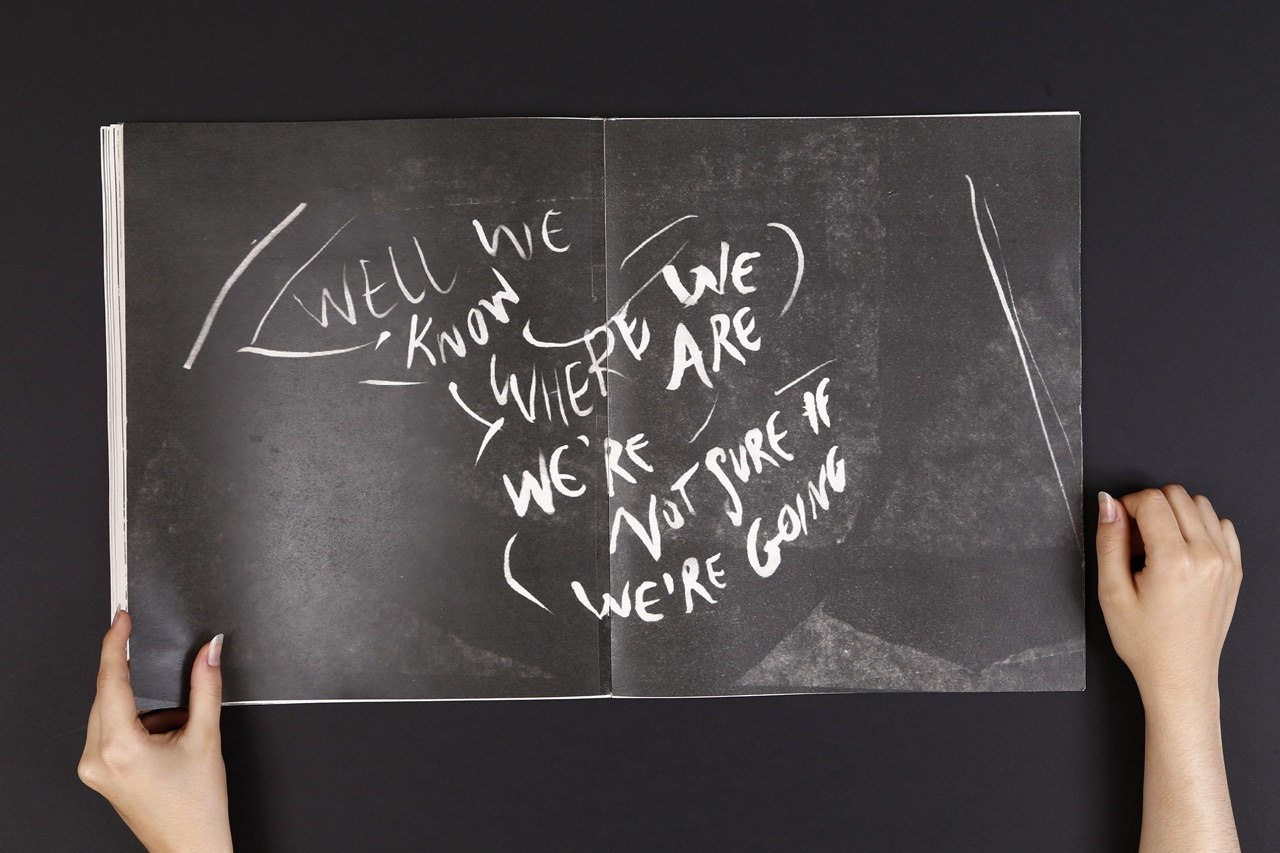 WELL WE
KNOW
WHERE WE
ARE
WE'RE
NOT SURE IF
WE'RE GOING